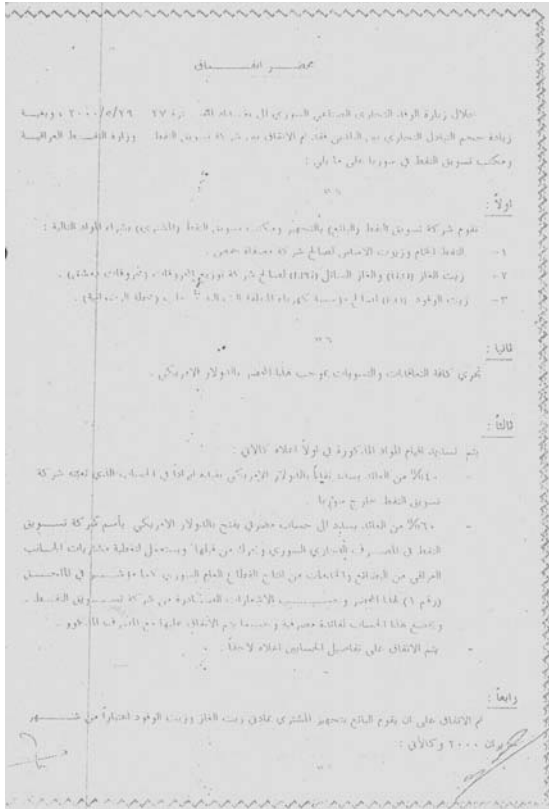 محضر اتفاق
خلال زيارة الوفد التجاري الصناعي السوري الى بغداد للفترة ٢٧ ٢٠٠٠/٥/٢٩ ، وبغية
زيادة حجم التبادل التجاري بين البلدين فقد تم الاتفاق بين شركة تسويق النفط وزارة النفط العراقية
ومكتب تسويق النفط في سوريا على ما يلي :
اولاً :
تقوم شركة تسويق النفط (البائع) بالتجهيز ومكتب تسويق النفط (المشتري) بشراء المواد التالية :
١- النفط الخام وزيوت الاساس لصالح شركة مصفاة حمص .
٢- زيت الغاز والغاز السائل لصالح شركة توزيع المحروقات (محروقات دمشق) .
٣- زيت الوقود لصالح مؤسسة كهرباء المنطقة
ثانيا :
تجري كافة التعاملات والتسويات بموجب هذا المحضر بالدولار الامريكي .
ثالثاً :
يتم تسديد قيام المواد المذكورة في اولاً اعلاه كالاتي :
- ٤٠% من العائد يسدد نقداً بالدولار الامريكي في الحساب الذي تعينه شركة
تسويق النفط خارج سوريا .
- ٦٠% من العائد يسدد الى حساب مصرفي يفتح بالدولار الامريكي بأسم شركة تسويق
النفط في المصرف التجاري السوري من قبلها ويستعمل لتغطية مشتريات الجانب
العراقي من البضائع والخدمات من انتاج القطاع العام السوري كما مؤشر في الملحق
(رقم ١) لهذا المحضر وحسب الاشعارات الصادرة من شركة تسويق النفط .
ويخضع هذا الحساب لفائدة مصرفية وحسبما يتم الاتفاق عليها مع المصرف المذكور .
- يتم الاتفاق على تفاصيل الحسابين اعلاه لاحقاً .
رابعاً :
تم الاتفاق على ان يقوم البائع بتجهيز المشتري بمادتي زيت الغاز وزيت الوقود اعتباراً من شهر
٢٠٠٠ وكالآتي :